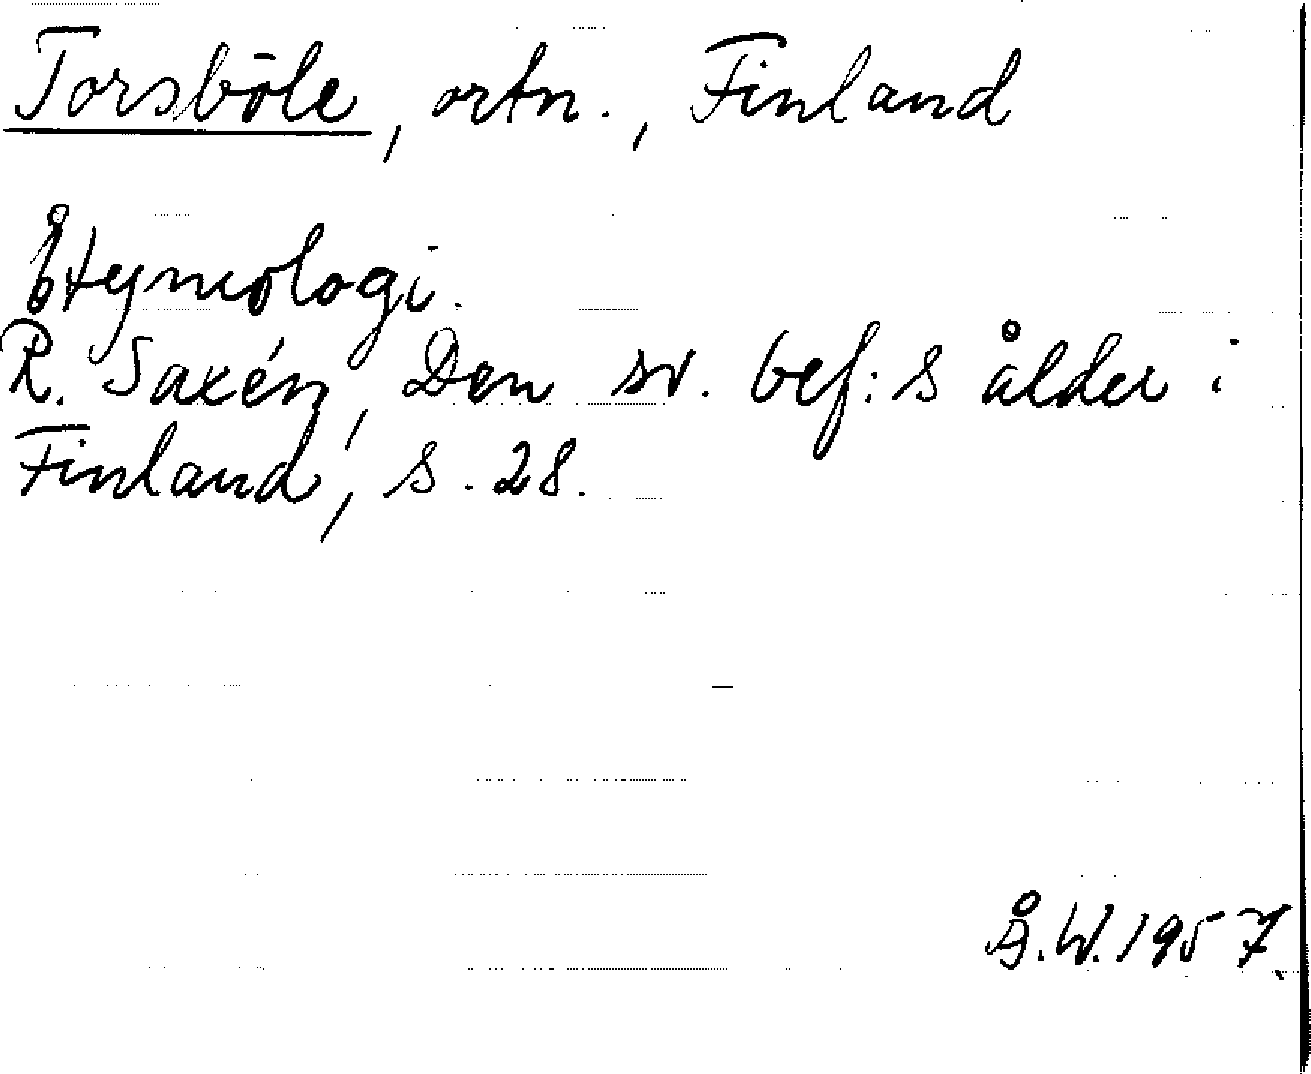 Torsböle, ortn., Finland
Etymologi.
R. Saxén, Den sv. bef:s ålder i
Finland, s. 28.
Å.W. 1957.